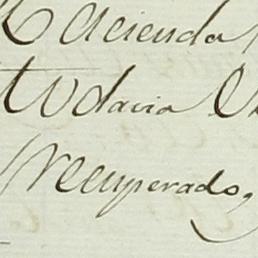 Hacienda
todavia
recuperado,